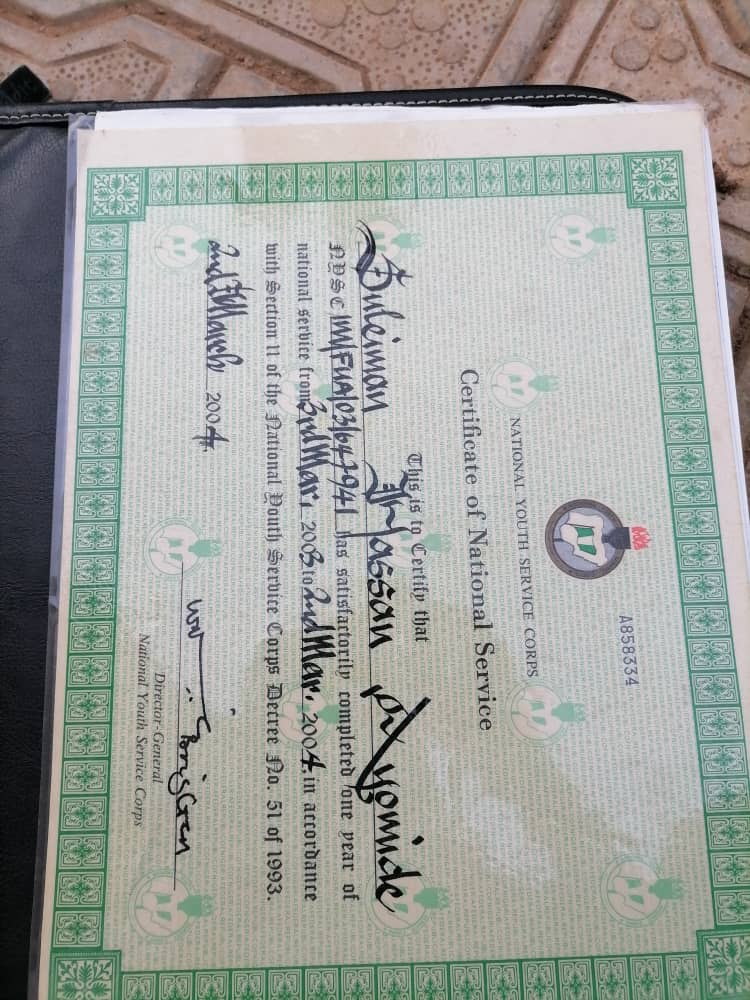 A858334
NATIONAL YOUTH SERVICE CORPS
Certificate of National Service
This is to Certify that
Suleiman Hassan Ayomide
NYSC has satisfactorily completed one year of
national service from 3rd Mar. 2003 to 2nd Mar. 2004. in accordance
with Section 11 of the National Youth Service Corps Decree No. 51 of 1993.
2nd March 2004.
Director-General
National Youth Service Corps